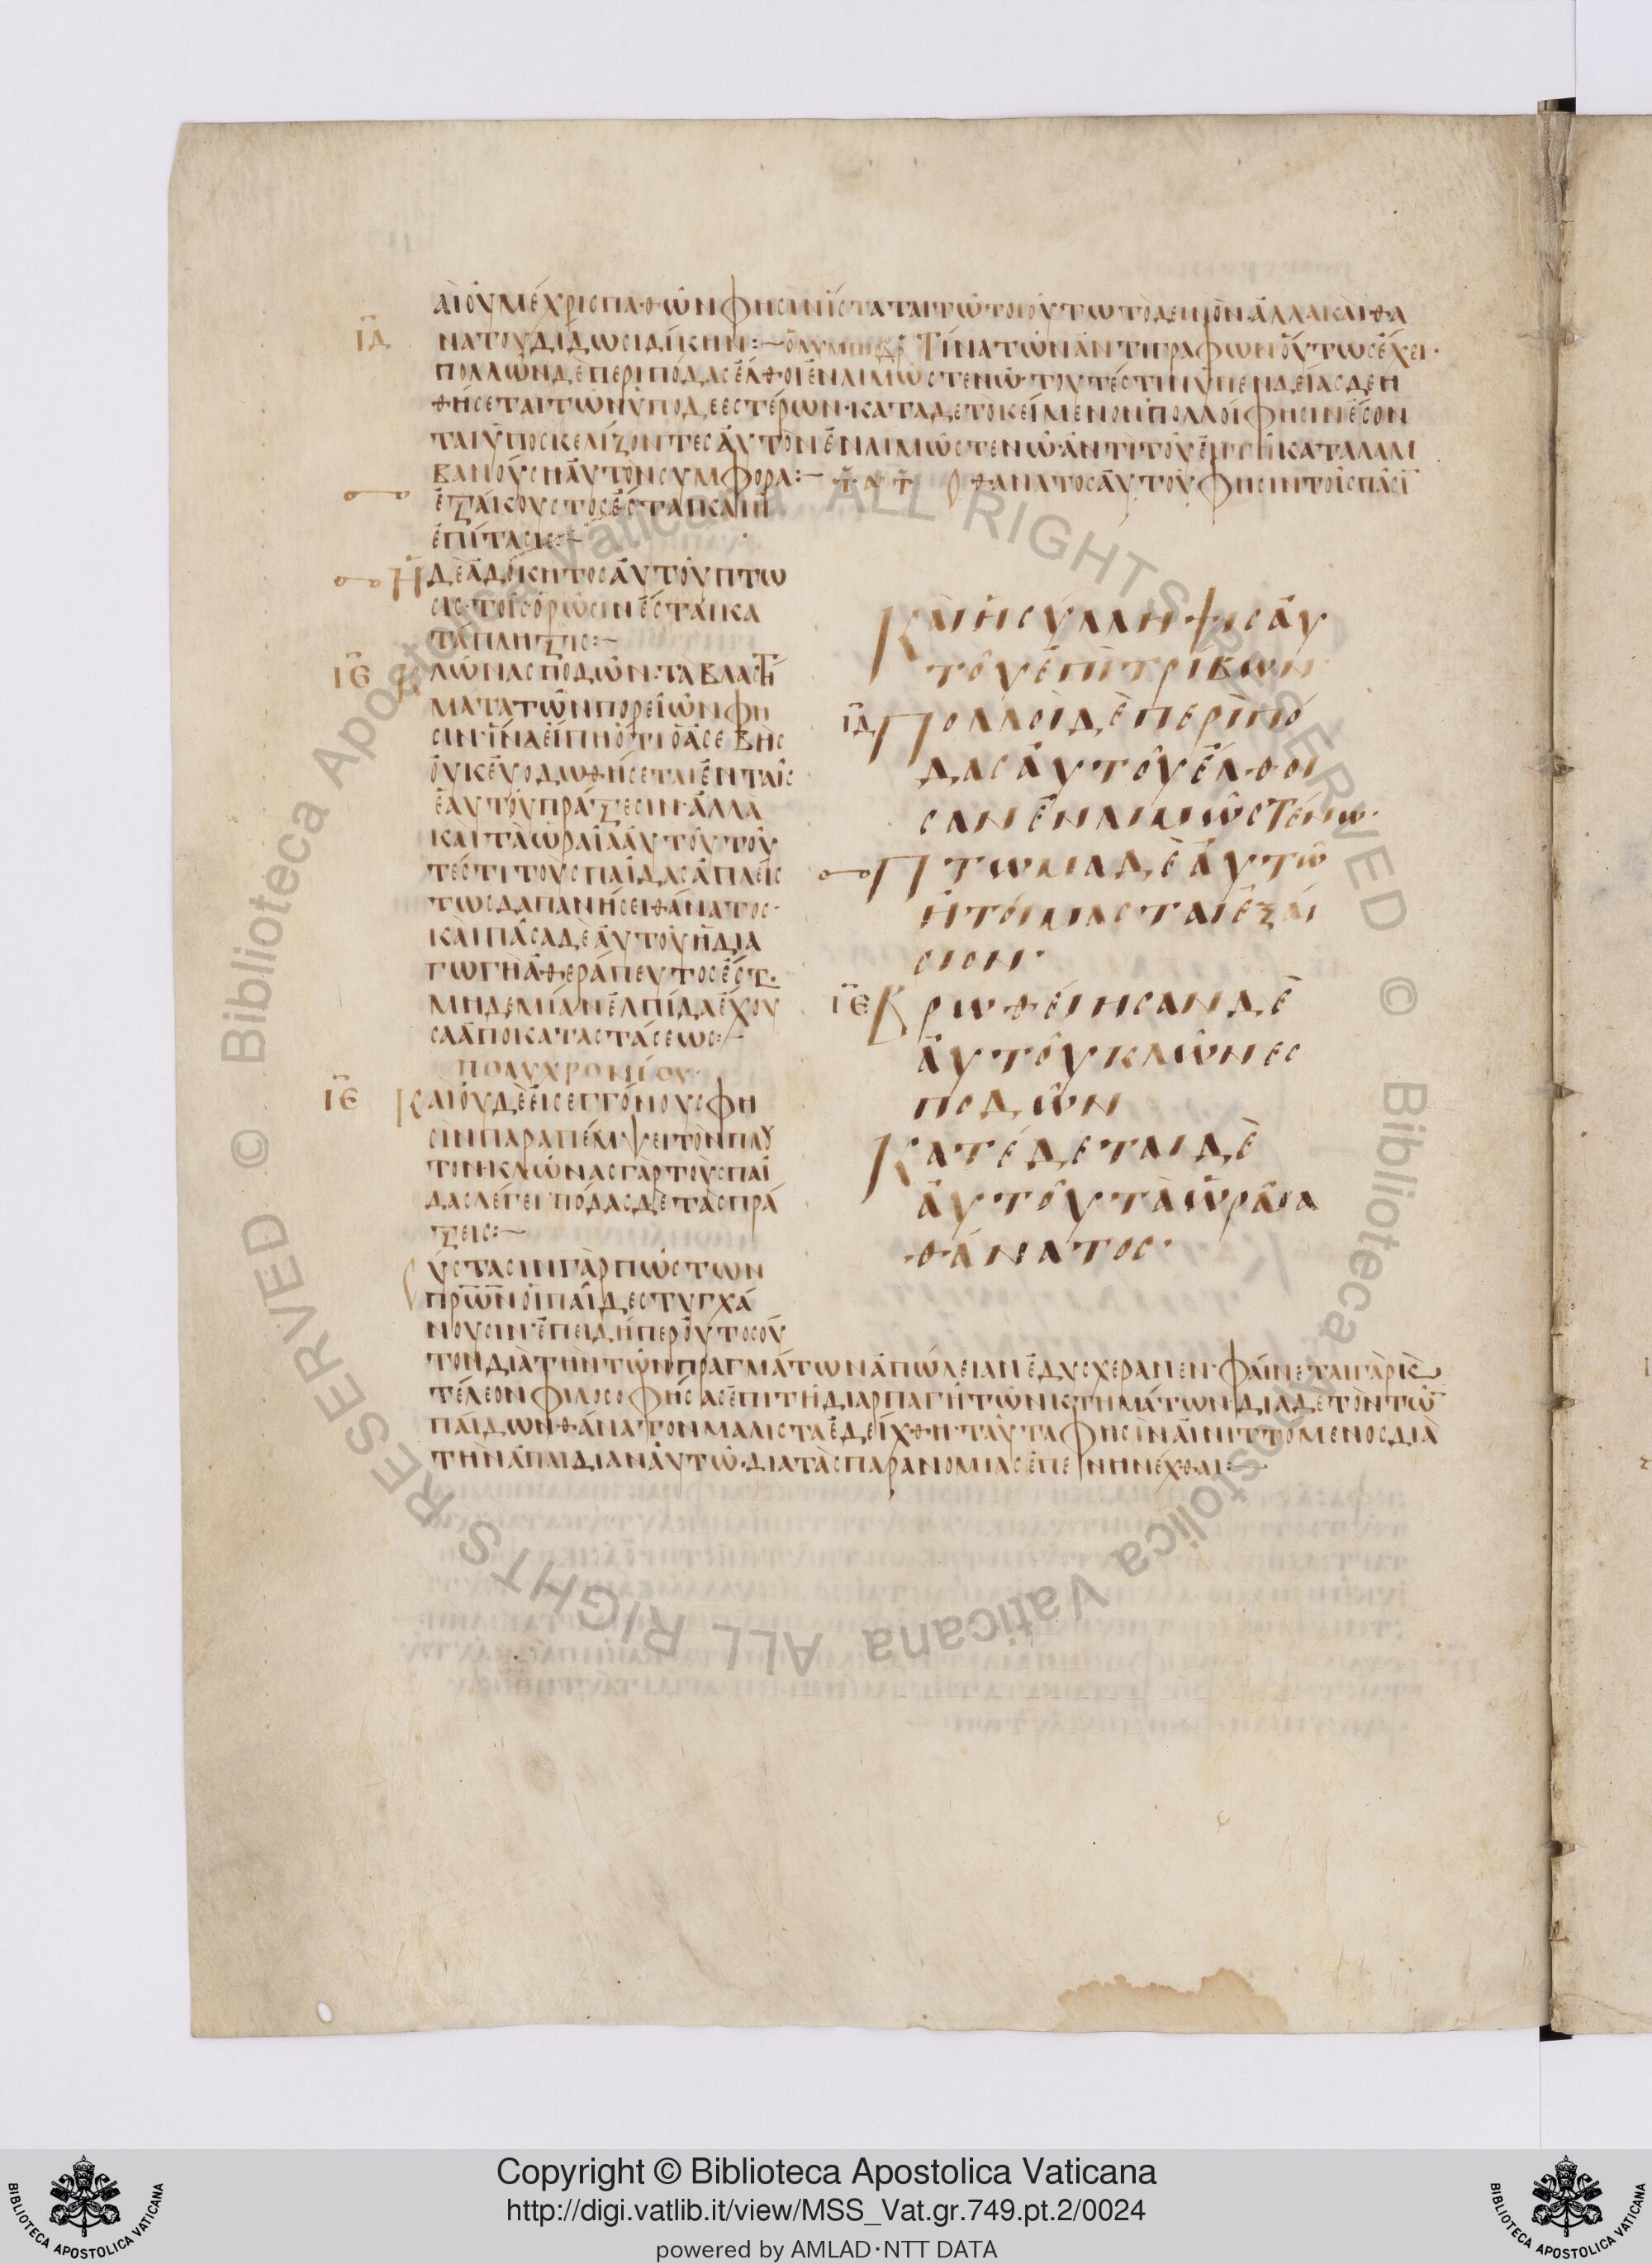 ΑΙΟΥΜΕΧΡΙΣΠΑΘΩΝΦΗΣΙΝΙΣΤΑΤΑΙΤΩΤΟΙΟΥΤΩΤΟΔΕΙΝΟΝ·ΑΛΛΑΚΑΙΘΑ
ΙΔ ΝΑΤΟΥΔΙΔΩΣΙΔΙΚΗΝ:— ΤΙΝΑΤΩΝΑΝΤΙΓΡΑΦΩΝΟΥΤΩΣΕΧΕΙ·
ΠΟΛΛΩΝΔΕΠΕΡΙΠΟΔΑΣΕΛΘΟΙΕΝΛΙΜΩΣΤΕΝΩ·ΤΟΥΤΕΣΤΙΝΥΠΕΝΔΕΙΑΣΔΕΗ
ΘΗΣΕΤΑΙΤΩΝΥΠΟΔΕΕΣΤΕΡΩΝ·ΚΑΤΑΔΕΤΟΚΕΙΜΕΝΟΝΠΟΛΛΟΙΦΗΣΙΝΕΣΟΝ
ΤΑΙΥΠΟΣΚΕΛΙΖΟΝΤΕΣΑΥΤΟΝΕΝΛΙΜΩΣΤΕΝΩ·ΑΝΤΙΤΟΥ ΚΑΤΑΛΑΜ
ΒΑΝΟΥΣΗΑΥΤΟΝΣΥΜΦΟΡΑ:— ΟΘΑΝΑΤΟΣΑΥΤΟΥΦΗΣΙΝΤΟΙΣΠΑΣΙ
ΕΞΑΚΟΥΣΤΟΣΕΣΤΑΙΚΑΙΗ
ΕΠΙΤΑΣΙΣ:—
ΗΔΕΑΔΟΚΗΤΟΣΑΥΤΟΥΠΤΩ
ΣΙΣ·ΤΟΙΣΟΡΩΣΙΝΕΣΤΑΙΚΑ
ΤΑΠΛΗΞΙΣ:—
ΙΕ ΚΛΩΝΑΣΠΟΔΩΝ·ΤΑΒΛΑΣΤΗ
ΜΑΤΑΤΩΝΠΟΡΕΙΩΝΦΗ
ΣΙΝ·ΙΝΑΕΙΠΗΟΤΙΟΑΣΕΒΗΣ
ΟΥΚΕΥΟΔΩΘΗΣΕΤΑΙΕΝΤΑΙΣ
ΕΑΥΤΟΥΠΡΑΞΕΣΙΝ·ΑΛΛΑ
ΚΑΙΤΑΩΡΑΙΑΑΥΤΟΥΤΟΥ
ΤΕΣΤΙΤΟΥΣΠΑΙΔΑΣΑΠΛΕΙΣ
ΤΩΣΔΑΠΑΝΗΣΕΙΘΑΝΑΤΟΣ·
ΚΑΙΠΑΣΑΔΕΑΥΤΟΥΗΔΙΑ
ΓΩΓΗΑΘΕΡΑΠΕΥΤΟΣΕΣΤ·
ΜΗΔΕΜΙΑΝΕΛΠΙΔΑΕΧΟΥ
ΣΑΑΠΟΚΑΤΑΣΤΑΣΕΩΣ:—
ΠΟΛΥΧΡΟΝΙΟΥ
ΙΕ ΚΑΙΟΥΔΕΕΙΣΕΓΓΟΝΟΥΣΦΗ
ΣΙΝΠΑΡΑΠΕΜΨΕΙΤΟΝΠΛΟΥ
ΤΟΝ·ΚΛΩΝΑΣΓΑΡΤΟΥΣΠΑΙ
ΔΑΣΛΕΓΕΙ·ΠΟΔΑΣΔΕΤΑΣΠΡΑ
ΞΕΙΣ:—
ΣΥΣΤΑΣΙΝΓΑΡΠΩΣΤΩΝ
ΠΡΩΝΟΙΠΑΙΔΕΣΤΥΓΧΑ
ΝΟΥΣΙΝ·ΕΠΕΙΔΗΠΕΡΟΥΤΟΣΟΥ
ΤΟΝΔΙΑΤΗΝΤΩΝΠΡΑΓΜΑΤΩΝΑΠΩΛΕΙΑΝΕΔΥΣΧΕΡΑΝΕΝ·ΦΑΙΝΕΤΑΙΓΑΡ
ΤΕΛΕΟΝΦΙΛΟΣΟΦΗΣΑΣΕΠΙΤΗΔΙΑΡΠΑΓΗΤΩΝΚΤΗΜΑΤΩΝ·ΔΙΑΔΕΤΟΝΤΩ
ΠΑΙΔΩΝΘΑΝΑΤΟΝΜΑΛΙΣΤΑΕΔΕΙΧΘΗ·ΤΑΥΤΑΦΗΣΙΝΑΙΝΙΤΤΟΜΕΝΟΣΔΙΑ
ΤΗΝΑΠΑΙΔΙΑΝΑΥΤΩ·ΔΙΑΤΑΣΠΑΡΑΝΟΜΙΑΣΕΠΕΝΗΝΕΧΘΑΙ:—
ΚΑΙΗΣΥΛΛΗΨΙΣΑΥ
ΤΟΥΕΠΙΤΡΙΒΩΝ
ΙΔ ΠΟΛΛΟΙΔΕΠΕΡΙΠΟ
ΔΑΣΑΥΤΟΥΕΛΘΟΙ
ΣΑΝΕΝΛΙΜΩΣΤΕΝΩ·
ΠΤΩΜΑΔΕΑΥΤΩ
ΗΤΟΙΜΑΣΤΑΙΕΞΑΙ
ΣΙΟΝ·
ΙΕ ΒΡΩΘΕΙΗΣΑΝΔΕ
ΑΥΤΟΥΚΛΩΝΕΣ
ΠΟΔΩΝ
ΚΑΤΕΔΕΤΑΙΔΕ
ΑΥΤΟΥΤΑΩΡΑΙΑ
ΘΑΝΑΤΟΣ·
© Biblioteca Apostolica Vaticana ALL RIGHTS RESERVED
© Biblioteca Apostolica Vaticana ALL RIGHTS RESERVED
Copyright © Biblioteca Apostolica Vaticana
http://digi.vatlib.it/view/MSS_Vat.gr.749.pt.2/0024
powered by AMLAD·NTT DATA
BIBLIOTECA APOSTOLICA VATICANA
BIBLIOTECA APOSTOLICA VATICANA